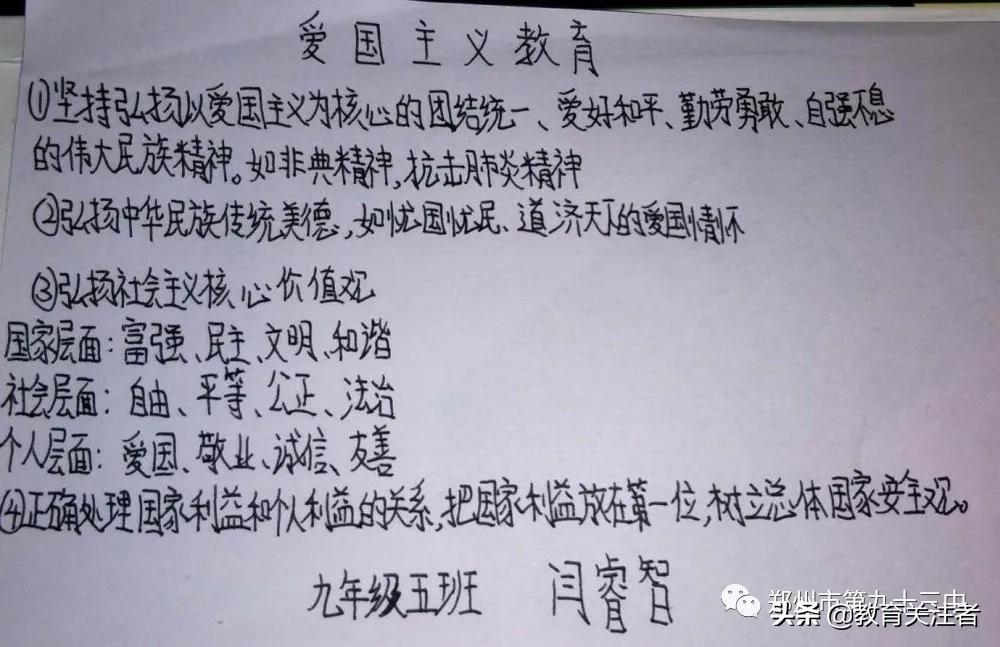 爱国主义教育
①坚持弘扬以爱国主义为核心的团结统一、爱好和平、勤劳勇敢、自强不息
的伟大民族精神。如非典精神,抗击肺炎精神
②弘扬中华民族传统美德,如忧国忧民、道济天下的爱国情怀
③弘扬社会主义核心价值观
国家层面:富强、民主、文明、和谐
社会层面:自由、平等、公正、法治
个人层面:爱国、敬业、诚信、友善
④正确处理国家利益和个人利益的关系,把国家利益放在第一位,树立总体国家安全观。
九年级五班 闫睿智
郑州市第九十三中
头条 @教育关注者